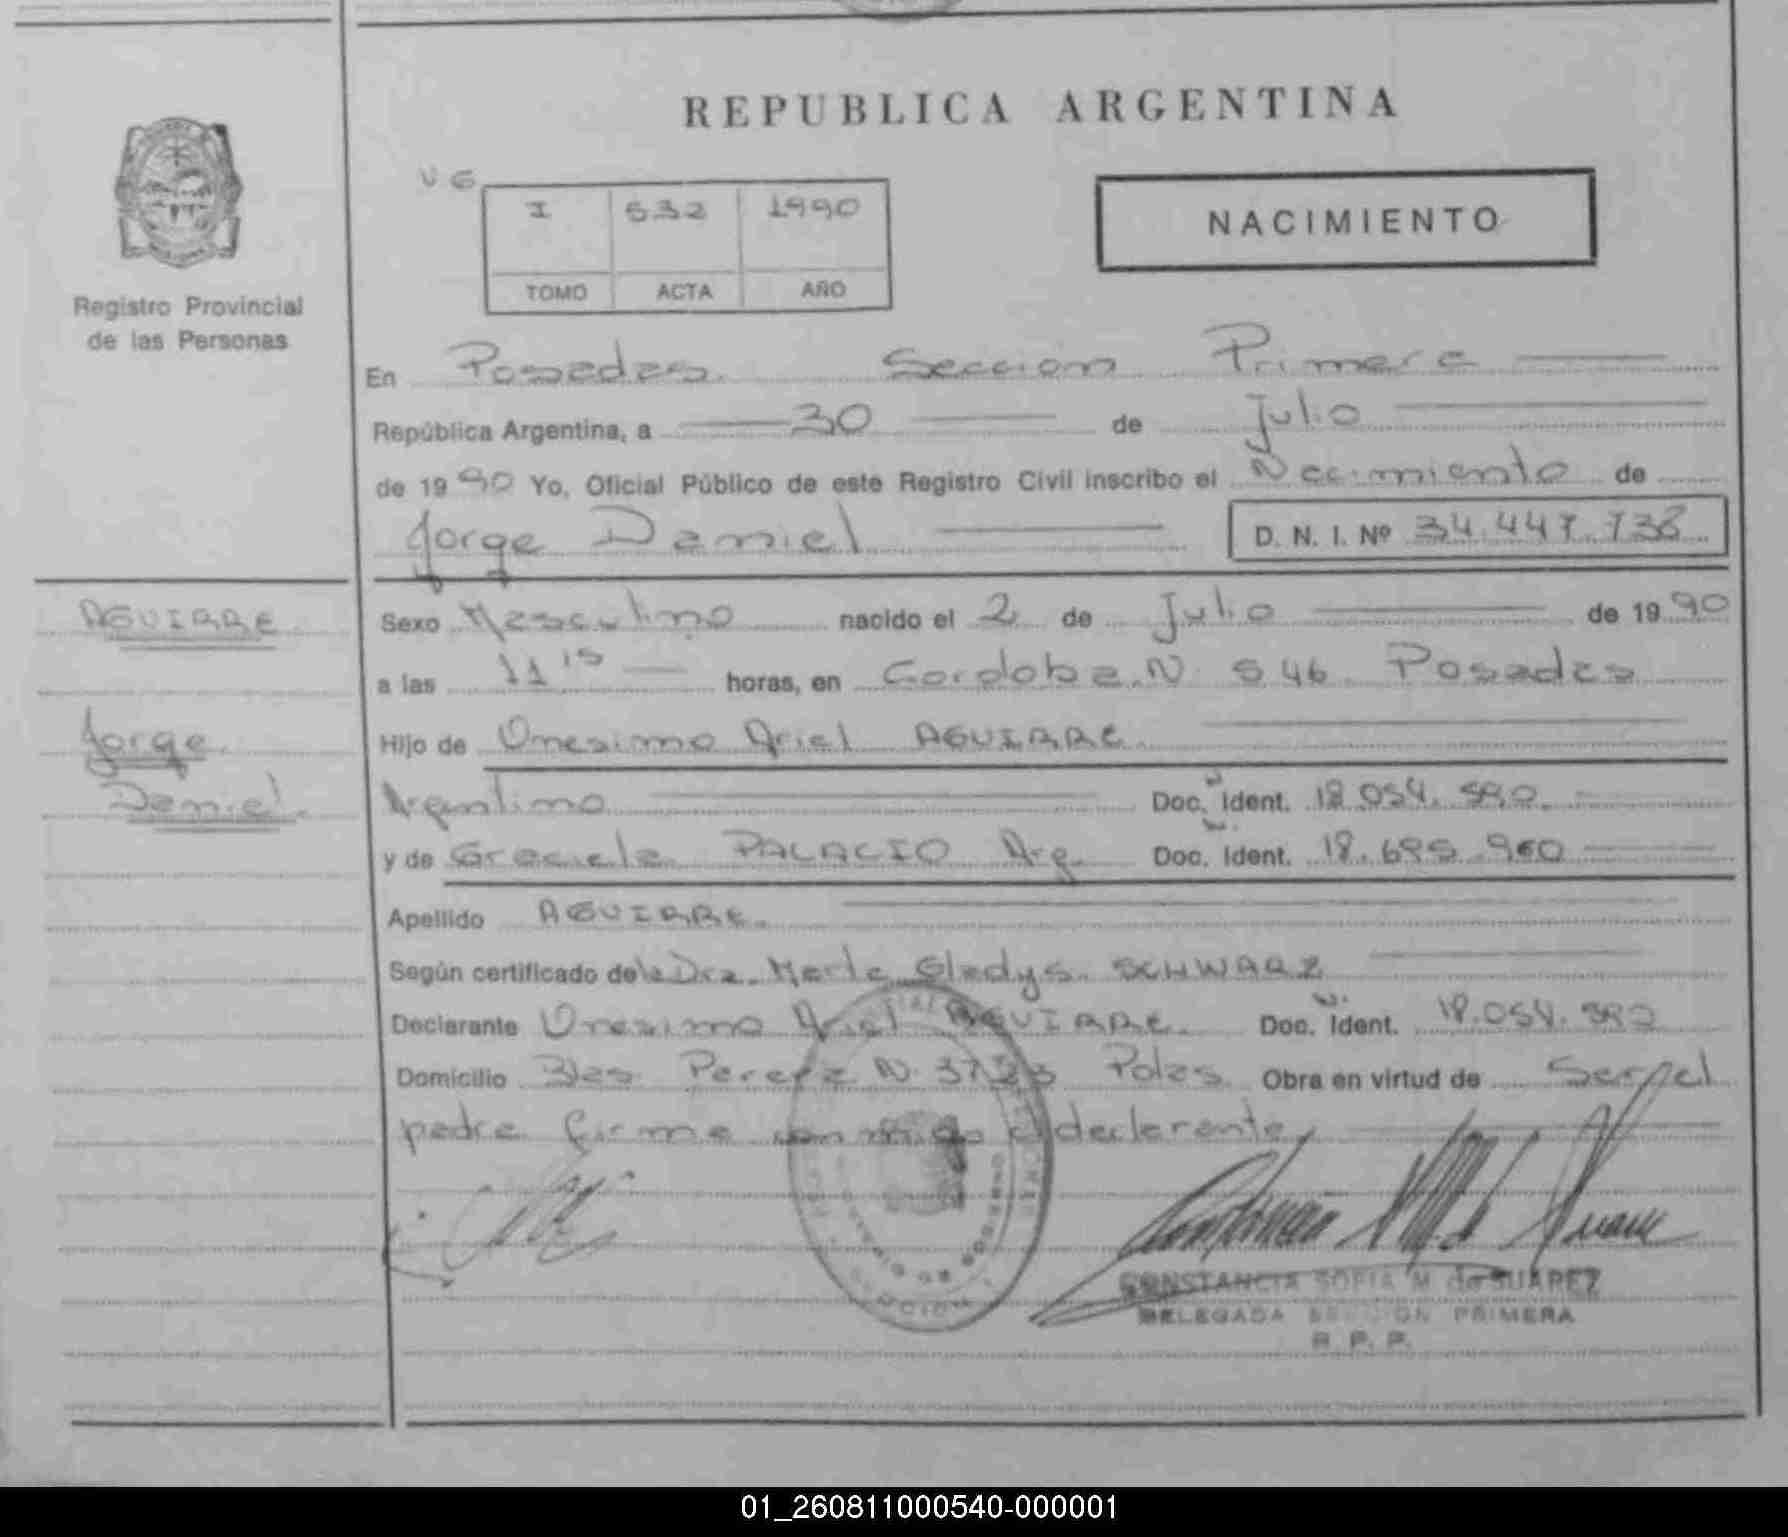 REPUBLICA ARGENTINA
V 6
I 532 1990
TOMO ACTA AÑO
NACIMIENTO
Registro Provincial
de las Personas
En Posadas Seccion Primera
República Argentina, a 30 de Julio
de 1990 Yo, Oficial Público de este Registro Civil inscribo el Nacimiento de
Jorge Daniel D. N. I. Nº 34.447.738
AGUIRRE
Jorge
Daniel
Sexo Masculino nacido el 2 de Julio de 1990
a las 11 15 horas, en Cordoba N 546 Posadas
Hijo de Onesimo Ariel AGUIRRE
Argentino Doc. Ident. 18.054.590
y de Graciela PALACIO Arg. Doc. Ident. 18.699.960
Apellido AGUIRRE
Según certificado de la Dra. Marta Gladys SCHWARZ
Declarante Onesimo Ariel AGUIRRE Doc. Ident. 18.054.590
Domicilio Blas Parera N. 3723 Pdas Obra en virtud de Ser el
padre firma conmigo el declarante
CONSTANCIA SOFIA M. de SUAREZ
DELEGADA SECCION PRIMERA
R. P. P.
01_260811000540-000001